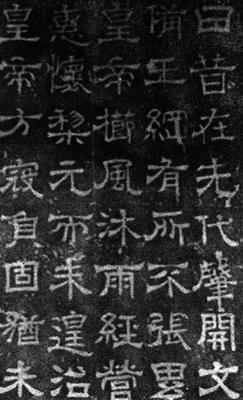 曰昔在先代肇開文
備王綱有所不張異
皇帝櫛風沐雨經營
惠懷黎元而未遑治
皇帝方寇負固猶未